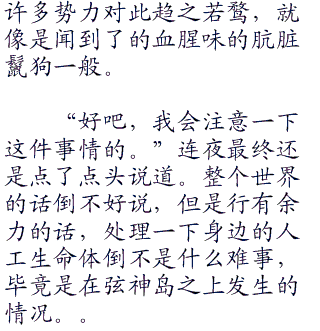 许多势力对此趋之若鹜，就
像是闻到了的血腥味的肮脏
鬣狗一般。
“好吧，我会注意一下
这件事情的。”连夜最终还
是点了点头说道。整个世界
的话倒不好说，但是行有余
力的话，处理一下身边的人
工生命体倒不是什么难事，
毕竟是在弦神岛之上发生的
情况。。